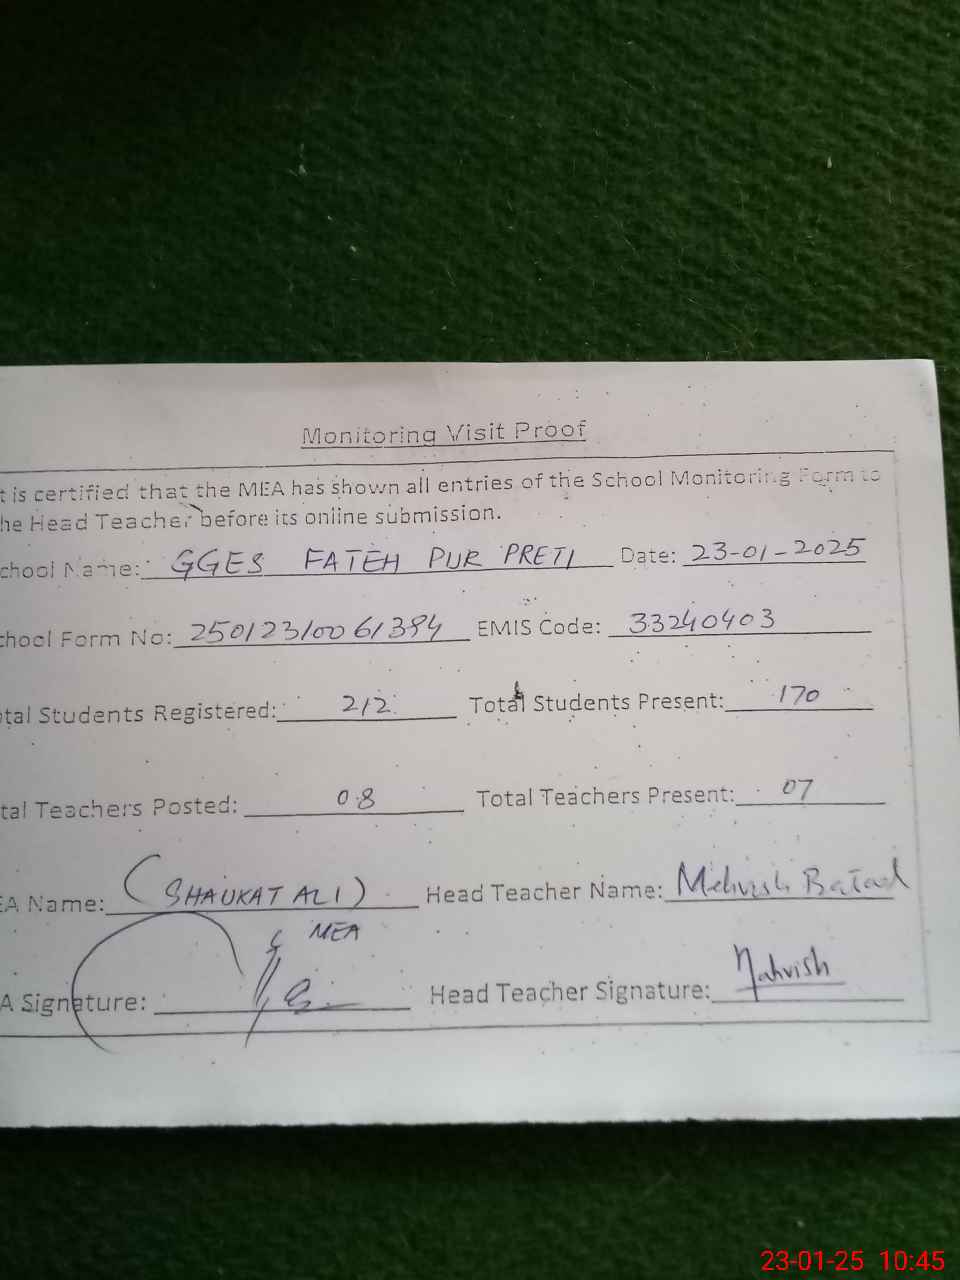 Monitoring Visit Proof
t is certified that the MEA has shown all entries of the School Monitoring Form to
he Head Teacher before its online submission.
chool Name: GGES FATEH PUR PRETI Date: 23-01-2025
chool Form No: EMIS Code: 33240403
otal Students Registered: 212 Total Students Present: 170
tal Teachers Posted: 08 Total Teachers Present: 07
EA Name: (SHAUKAT ALI) Head Teacher Name: Mehvish
MEA
A Signature: Head Teacher Signature: Mahvish
23-01-25 10:45